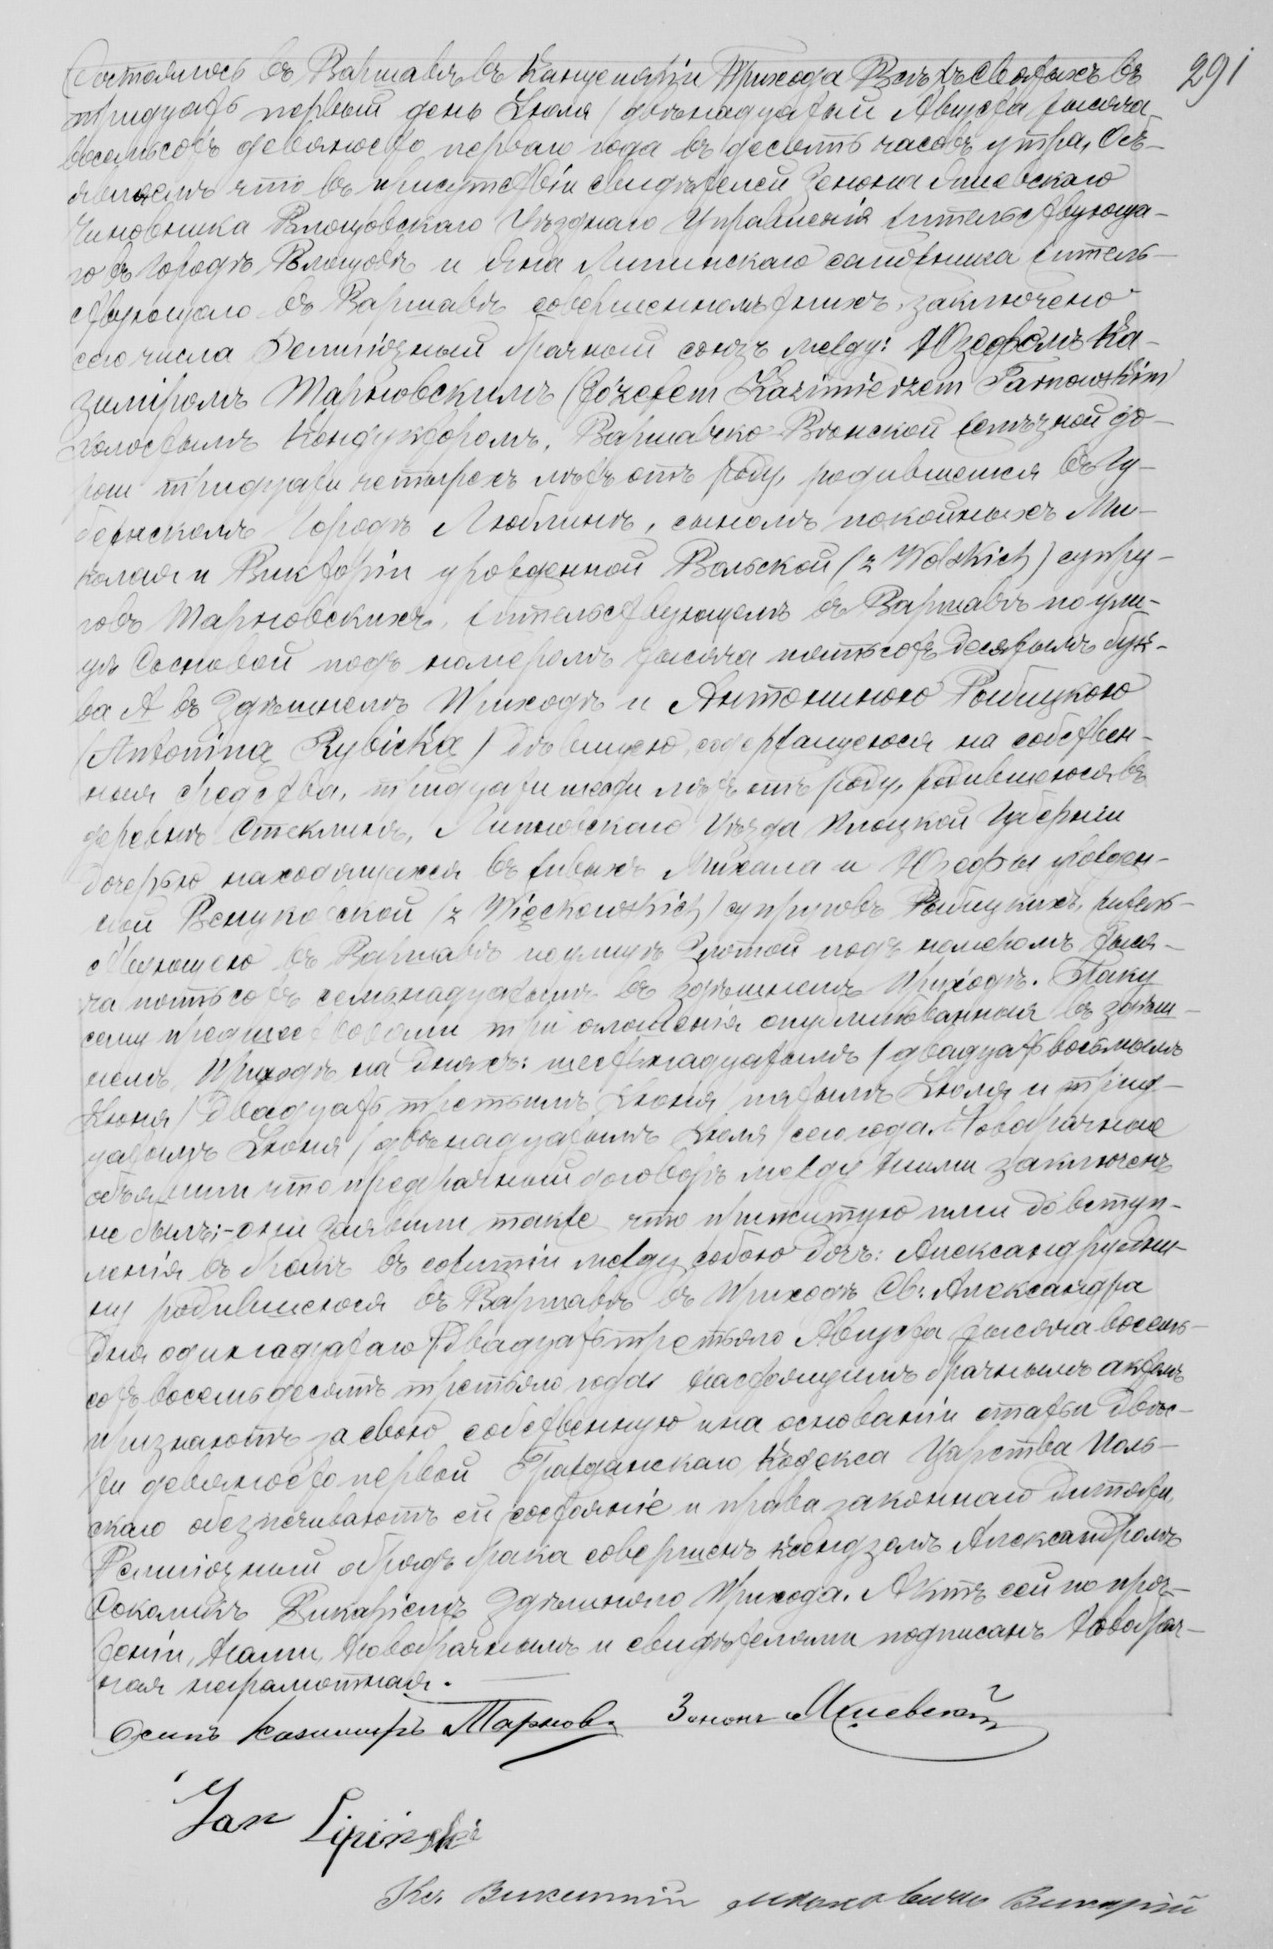 291
Состоялось въ Варшавѣ въ Канцеляріи Прихода Всѣхъ Святыхъ въ
тридцать первый день Іюля / двѣнадцатый Августа тысяча
восемьсотъ девяносто перваго года въ десять часовъ утра. Объ-
являемъ что въ присутствіи свидѣтелей Зенона
Чиновника Влощовскаго Уѣзднаго Управленія жительствующа-
го въ Городѣ Влощовѣ и Яна Липинскаго жительс-
ствующаго въ Варшавѣ совершеннолѣтнихъ, заключено
сего числа Религіозный брачный союзъ между: Юзефомъ Ка-
зиміромъ Тарновскимъ (Józefem Kazimierzem Tarnowskim)
холостымъ Кондукторомъ, Варшавско-Вѣнской желѣзной до-
роги тридцати четырехъ лѣтъ отъ роду, родившемся въ Гу-
бернскомъ Городѣ Люблинѣ, сыномъ покойныхъ Ми-
колая и Викторіи урожденной Вольской (z Wolskich) супру-
говъ Тарновскихъ, жительствующемъ въ Варшавѣ по ули-
цѣ Сосновой подъ номеромъ тысяча пятьсотъ десятымъ бук-
ва А въ здѣшнемъ Приходѣ и Антониною Рыбицкою
(Antonina Rybicka) Дѣвицею, содержащеюся на собствен-
ныя средства, тридцати шести лѣтъ отъ роду, родившеюся въ
деревнѣ Стеклинѣ, Липновскаго Уѣзда Плоцкой Губерніи
дочерью находящихся въ живыхъ Михала и Юзефы урожден-
ной Венцковской (z Więckowskich) супруговъ Рыбицкихъ, житель-
ствующею въ Варшавѣ по улицѣ Злотой подъ номеромъ тыся-
ча пятьсотъ семьнадцатымъ въ здѣшнемъ Приходѣ. Браку
сему предшествовали три оглашенія опубликованныя въ здѣш-
немъ Приходѣ на дняхъ: шестьнадцатымъ / двадцать восьмымъ
Іюня / двадцать третьимъ Іюня / пятымъ Іюля и трид-
цатымъ Іюня / двѣнадцатымъ Іюля / сего года. Новобрачные
объявили что предбрачный договоръ между ними заключенъ
не былъ;- они заявили также что прижитую ими до вступ-
ленія въ бракъ въ сожитіи между собою дочь: Александру
родившеюся въ Варшавѣ въ Приходѣ Св: Александра
дня одинадцатаго / двадцать третьяго Августа тысяча восемь-
сотъ восемьдесятъ третьяго года настоящимъ брачнымъ актомъ
признаютъ за свою собственную и на основаніи статьи двѣс-
ти девяносто первой Гражданскаго Кодекса Царства Поль-
скаго обезпечиваютъ ей состояніе и права законнаго дитяти.
Религіозный обрядъ брака совершенъ Ксендзомъ Александромъ
Викаріемъ здѣшняго Прихода. Актъ сей по проч-
теніи, Нами, Новобрачнымъ и свидѣтелями подписанъ Новобрач-
ная неграмотная.
Осипъ Казимиръ Тарновс. Зенонъ
Jan Lipiński
Кс. Викентій Викарій